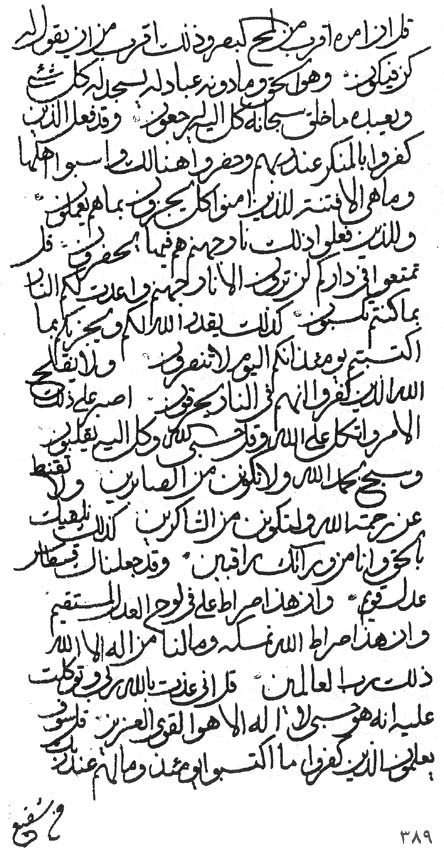 قل ان امره اقرب من لمح البصر وذلك اقرب من ان يقول له
كن فيكون وهو الحق وما دونه عباد له يسجد له كل شيء
ويعيده ما خلق سبحانه كل اليه يرجعون وقد فعل الذين
كفروا بالمنكر عند ربهم وحضروا هنالك واسبوا اهلها
وما هي الا فتنة للذين امنوا كل يجزون بما هم يعملون
وللذين فعلوا ذلك نار جهنم هم فيها يحضرون قل
تمتعوا في داركم لن ترون الا نار جهنم واعدت لكم النار
بما كنتم تكسبون كذلك يقدر الله لكم ويجزيكم بما
اكتسبتم يومئذ انكم اليوم لا تنصرون ولا يفلح
الله الذين كفروا انهم في النار يحرقون اصبر على ذلك
الامر واتكل على الله وقل حسبي الله وكل اليه يقلبون
وسبح بحمد الله ولتكونن من الصابرين ولا تقنط
عن رحمة الله ولتكونن من الشاكرين كذلك
بالحق وانا من ورائك راقبين وقد جعلناك
عدل قويم وان هذا صراط علي في لوح العدل المستقيم
وان هذا صراط الله نمسكه وما لنا من اله الا الله
ذلك رب العالمين قل اني عذت بالله ربي وتوكلت
عليه انه هو حسبي لا اله الا هو القوي العزيز قل سوف
يعلمون الذين كفروا ما اكتسبوا يومئذ وما لهم عند ربك
شفيع
٣٨٩